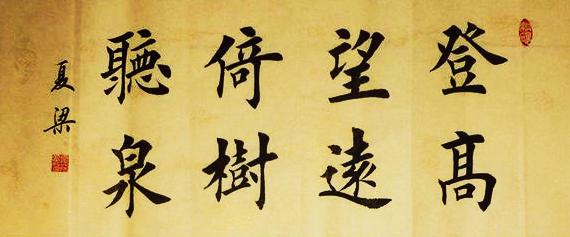 登髙
望遠
倚樹
聽泉
夏梁